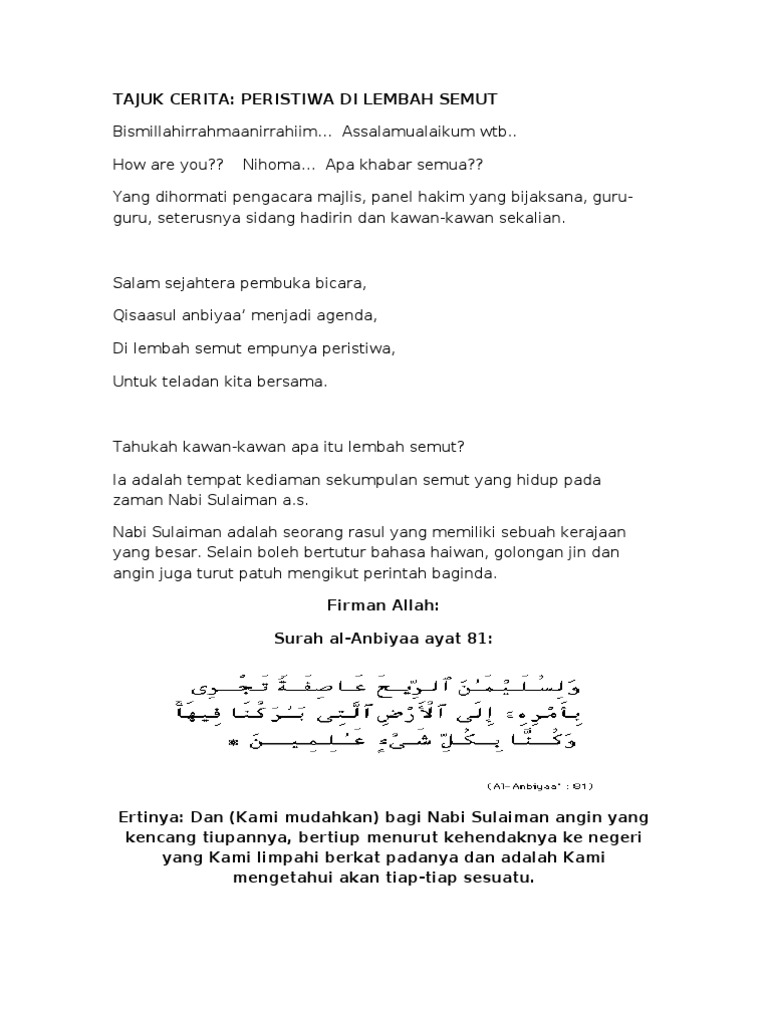 TAJUK CERITA: PERISTIWA DI LEMBAH SEMUT
Bismillahirrahmaanirrahiim... Assalamualaikum wtb..
How are you?? Nihoma... Apa khabar semua??
Yang dihormati pengacara majlis, panel hakim yang bijaksana, guru-
guru, seterusnya sidang hadirin dan kawan-kawan sekalian.
Salam sejahtera pembuka bicara,
Qisaasul anbiyaa’ menjadi agenda,
Di lembah semut empunya peristiwa,
Untuk teladan kita bersama.
Tahukah kawan-kawan apa itu lembah semut?
Ia adalah tempat kediaman sekumpulan semut yang hidup pada
zaman Nabi Sulaiman a.s.
Nabi Sulaiman adalah seorang rasul yang memiliki sebuah kerajaan
yang besar. Selain boleh bertutur bahasa haiwan, golongan jin dan
angin juga turut patuh mengikut perintah baginda.
Firman Allah:
Surah al-Anbiyaa ayat 81:
وَلِسُلَيْمَـٰنَ ٱلرِّيحَ عَاصِفَةً تَجْرِى
بِأَمْرِهِۦٓ إِلَى ٱلْأَرْضِ ٱلَّتِى بَـٰرَكْنَا فِيهَاۚ
وَكُنَّا بِكُلِّ شَىْءٍ عَـٰلِمِينَ *
(Al-Anbiyaa' : 81)
Ertinya: Dan (Kami mudahkan) bagi Nabi Sulaiman angin yang
kencang tiupannya, bertiup menurut kehendaknya ke negeri
yang Kami limpahi berkat padanya dan adalah Kami
mengetahui akan tiap-tiap sesuatu.